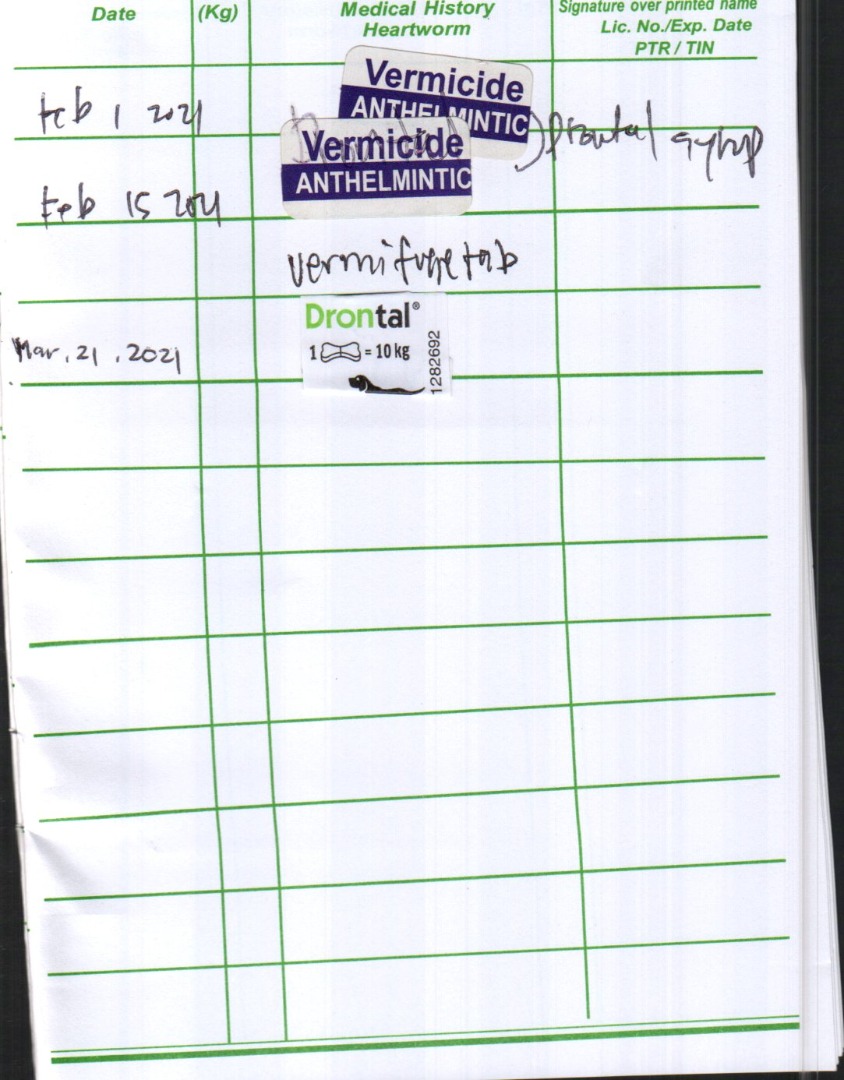 Date
(Kg)
Medical History
Heartworm
Signature over printed name
Lic. No./Exp. Date
PTR / TIN
Feb 1 2021
Vermicide
ANTHELMINTIC
Vermicide
ANTHELMINTIC
prontal syrup
Feb 15 2021
vermifuge tab
Mar. 21. 2021
Drontal®
1 = 10 kg
1282692